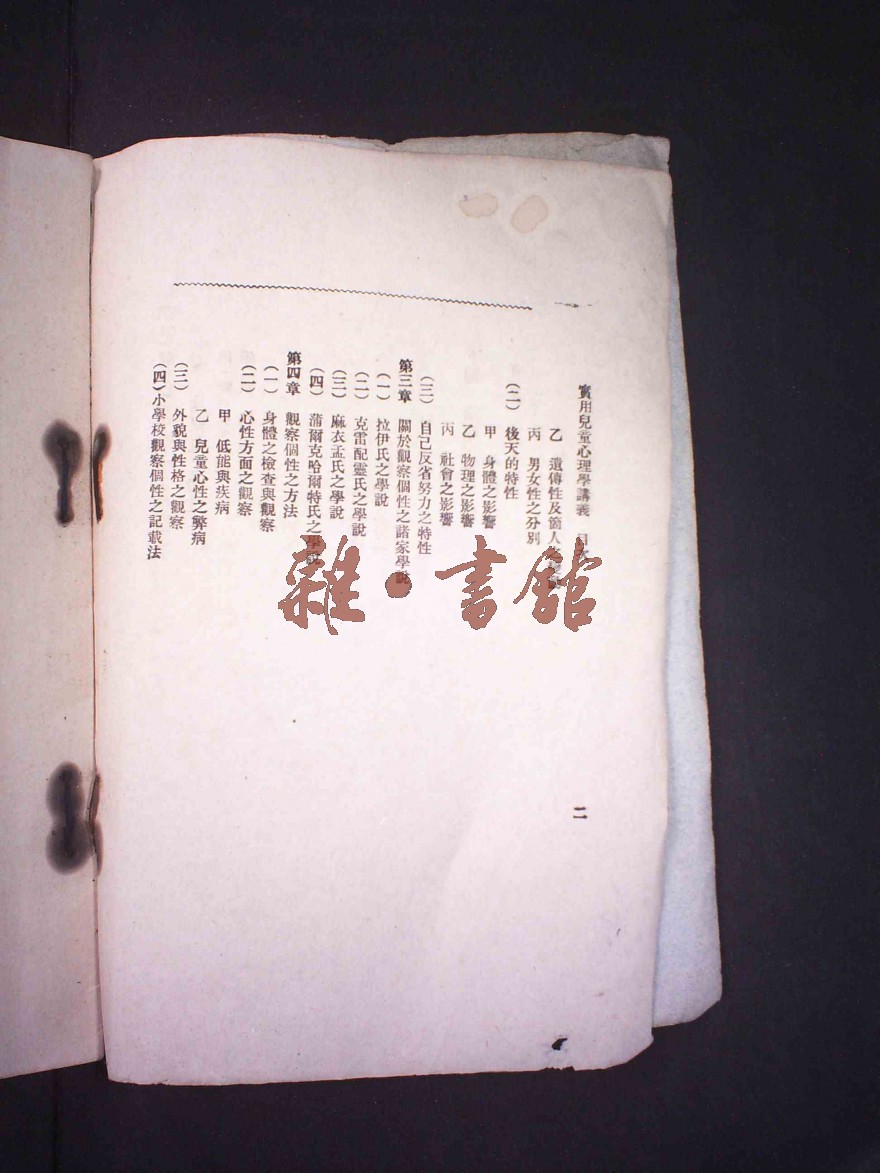 實用兒童心理學講義 目
二
乙 遺傳性及箇人
丙 男女性之分別
(二) 後天的特性
甲 身體之影響
乙 物理之影響
丙 社會之影響
(三) 自己反省努力之特性
第三章 關於觀察個性之諸家學說
(一) 拉伊氏之學說
(二) 克雷配靈氏之學說
(三) 麻衣孟氏之學說
(四) 蒲爾克哈爾特氏之學說
第四章 觀察個性之方法
(一) 身體之檢查與觀察
(二) 心性方面之觀察
甲 低能與疾病
乙 兒童心性之弊病
(三) 外貌與性格之觀察
(四) 小學校觀察個性之記載法
雜·書館